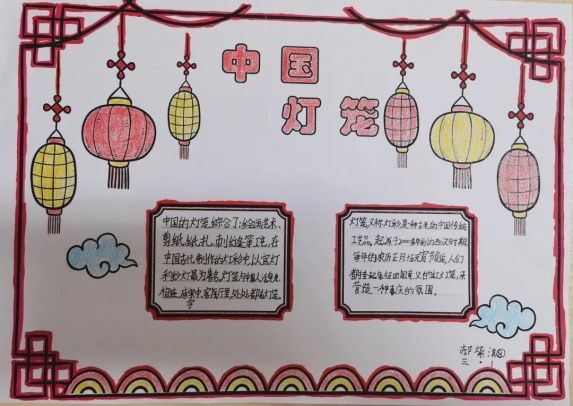 中国
灯笼
中国的灯笼,综合了:绘画艺术、
剪纸、纸扎、刺缝等工艺,在
中国古代制作的灯彩中,以宫灯
和纱灯最为著名,灯笼与中国人生活息息
相连,庙宇中、客厅里处处都有灯笼。
灯笼,又称灯彩,是一种古老的中国传统
工艺品,起源于2000多年前的西汉时期,
每年的农历正月十五元宵节前后,人们
都挂起象征团圆意义的红灯笼,来
营造一种喜庆的氛围。
三.1